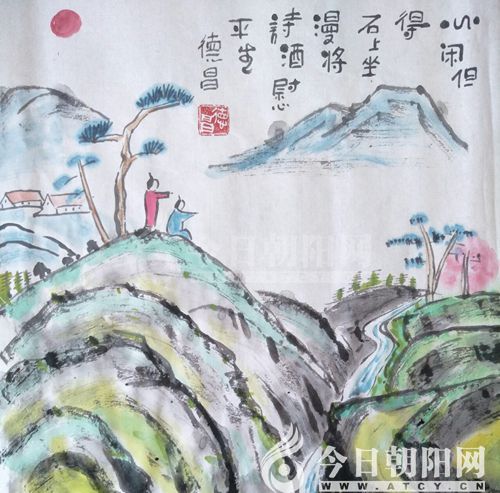 心闲但
得
石上坐
漫将
詩酒慰
平生
德昌
德昌
今日朝阳网
今日朝阳网
WWW.ATCY.CN